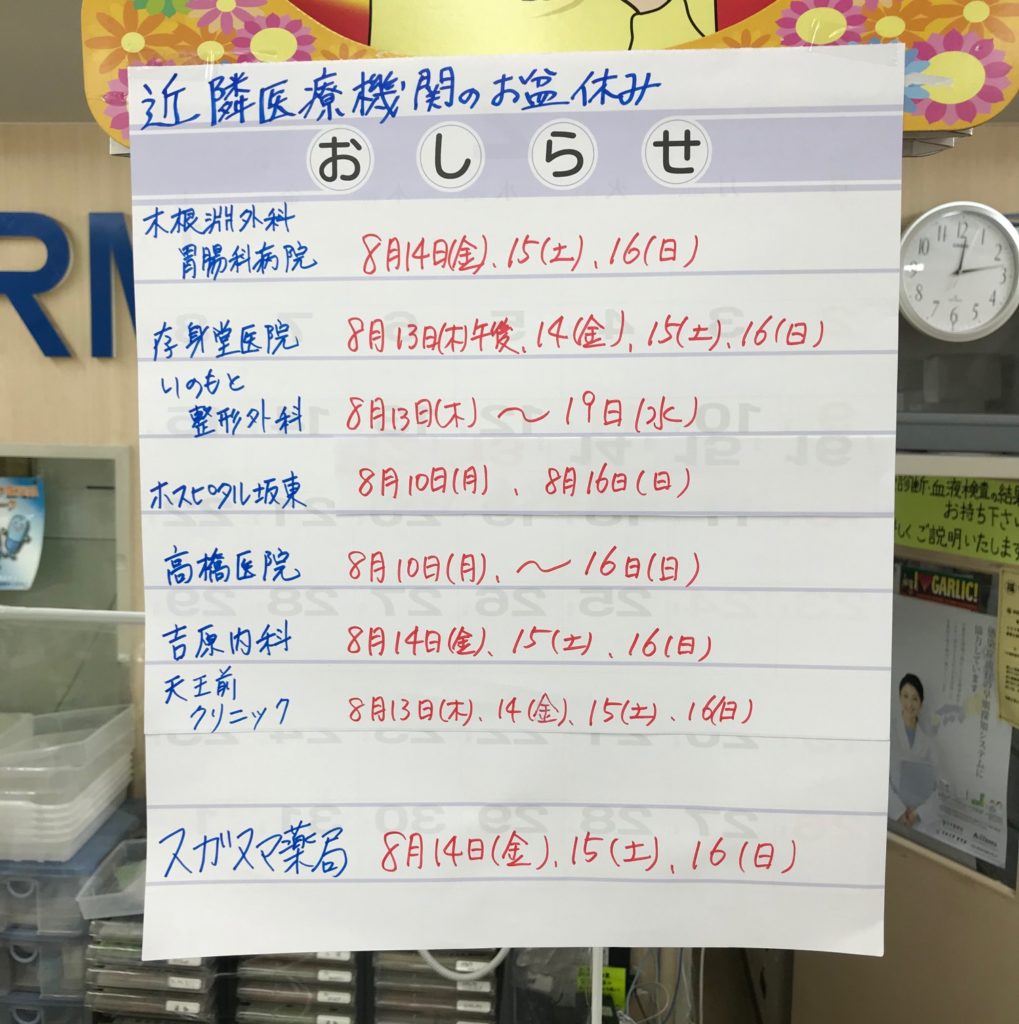 近隣医療機関のお盆休み
おしらせ
木根淵外科
胃腸科病院 8月14日(金)、15(土)、16(日)
存身堂医院 8月13日(木)午後、14(金)、15(土)、16(日)
いのもと
整形外科 8月13日(木)〜19日(水)
ホスピタル坂東 8月10日(月)、8月16日(日)
高橋医院 8月10日(月)、〜16日(日)
吉原内科 8月14日(金)、15(土)、16(日)
天王前
クリニック 8月13日(木)、14(金)、15(土)、16(日)
スガヌマ薬局 8月14日(金)、15(土)、16(日)
RM
診断・血液検査の結果
お持ち下さい
しくご説明いたします
GARLIC!